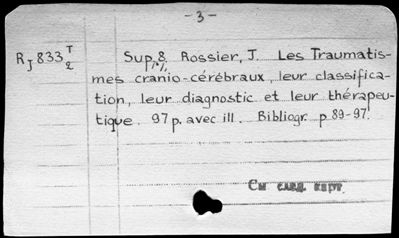 - 3 -
RJ 833 T/2 Sup. 8. Rossier, J. Les Traumatis-
mes cranio-cérébraux, leur classifica-
tion, leur diagnostic et leur thérapeu-
tique. 97 p. avec ill. Bibliogr. p. 89-97.
См. след. карт.